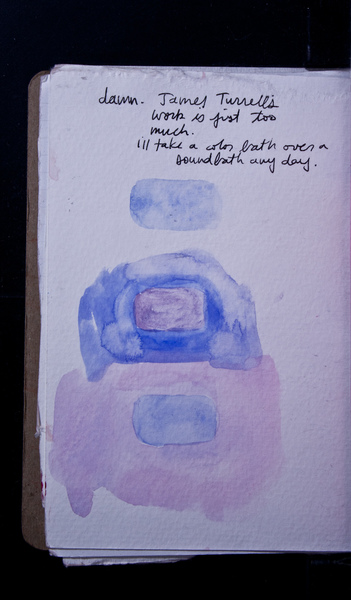 damn. James Turrell's
work is just too
much.
ill take a color bath over a
soundbath any day.